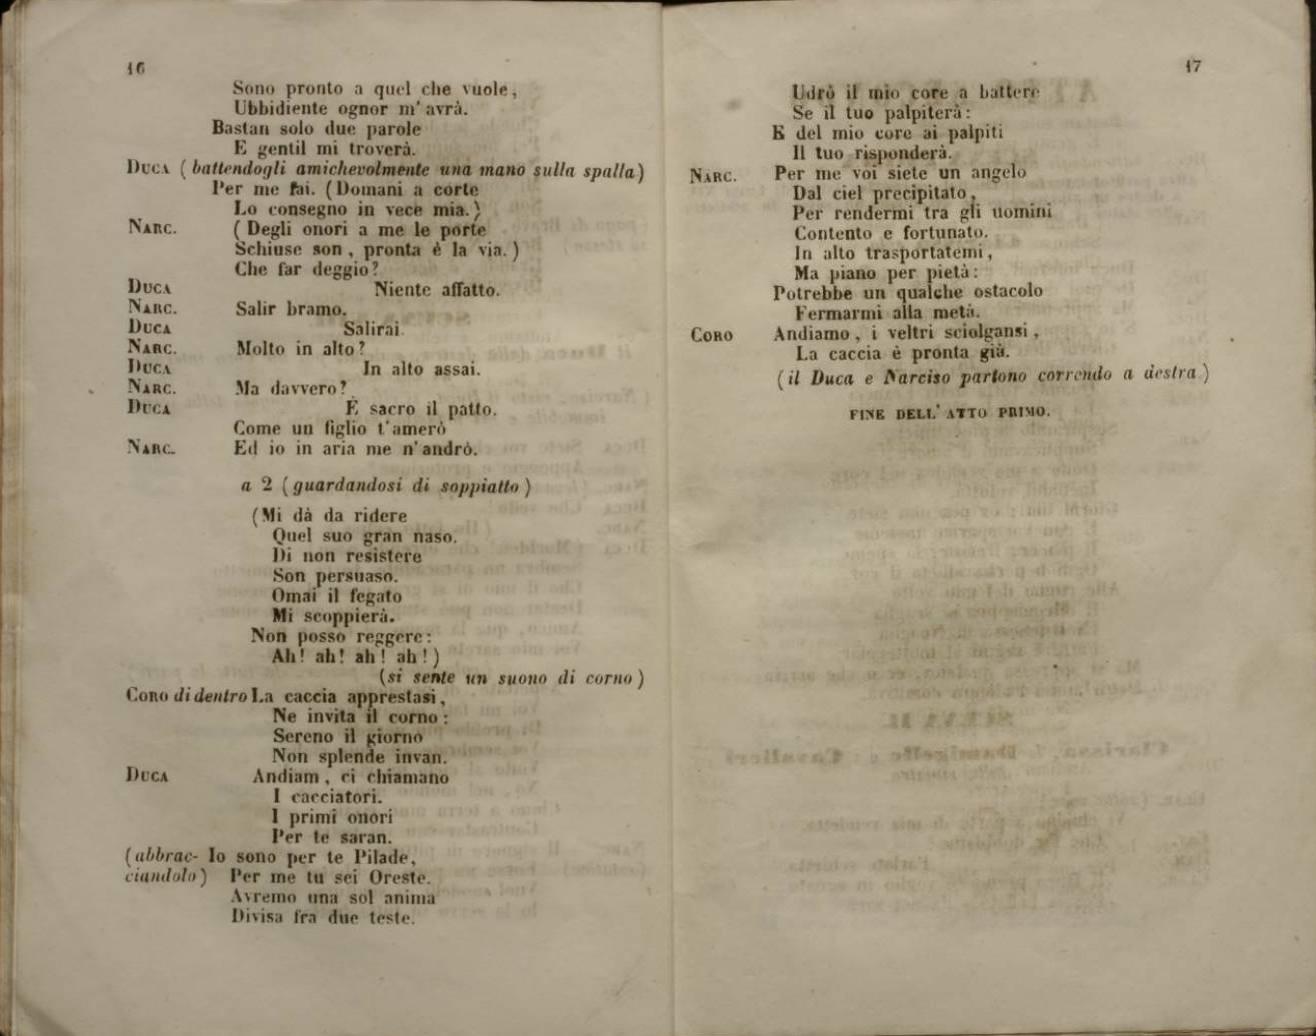 16
Sono pronto a quel che vuole,
Ubbidiente ognor m'avrà.
Bastan solo due parole
E gentil mi troverà.
DUCA (battendogli amichevolmente una mano sulla spalla)
Per me fai. (Domani a corte
Lo consegno in vece mia.)
NARC. (Degli onori a me le porte
Schiuse son, pronta è la via.)
Che far deggio?
DUCA Niente affatto.
NARC. Salir bramo.
DUCA Salirai.
NARC. Molto in alto?
DUCA In alto assai.
NARC. Ma davvero?
DUCA È sacro il patto.
Come un figlio t'amerò
NARC. Ed io in aria me n'andrò.
a 2 (guardandosi di soppiatto)
(Mi dà da ridere
Quel suo gran naso.
Di non resistere
Son persuaso.
Omai il fegato
Mi scoppierà.
Non posso reggere:
Ah! ah! ah! ah!)
(si sente un suono di corno)
CORO di dentro La caccia apprestasi,
Ne invita il corno:
Sereno il giorno
Non splende invan.
DUCA Andiam, ci chiamano
I cacciatori.
I primi onori
Per te saran.
(abbrac- Io sono per te Pilade,
ciandolo) Per me tu sei Oreste.
Avremo una sol anima
Divisa fra due teste.
17
Udrò il mio core a battere
Se il tuo palpiterà:
E del mio core ai palpiti
Il tuo risponderà.
NARC. Per me voi siete un angelo
Dal ciel precipitato,
Per rendermi tra gli uomini
Contento e fortunato.
In alto trasportatemi,
Ma piano per pietà:
Potrebbe un qualche ostacolo
Fermarmi alla metà.
CORO Andiamo, i veltri sciolgansi,
La caccia è pronta già.
(il Duca e Narciso partono correndo a destra)
FINE DELL'ATTO PRIMO.